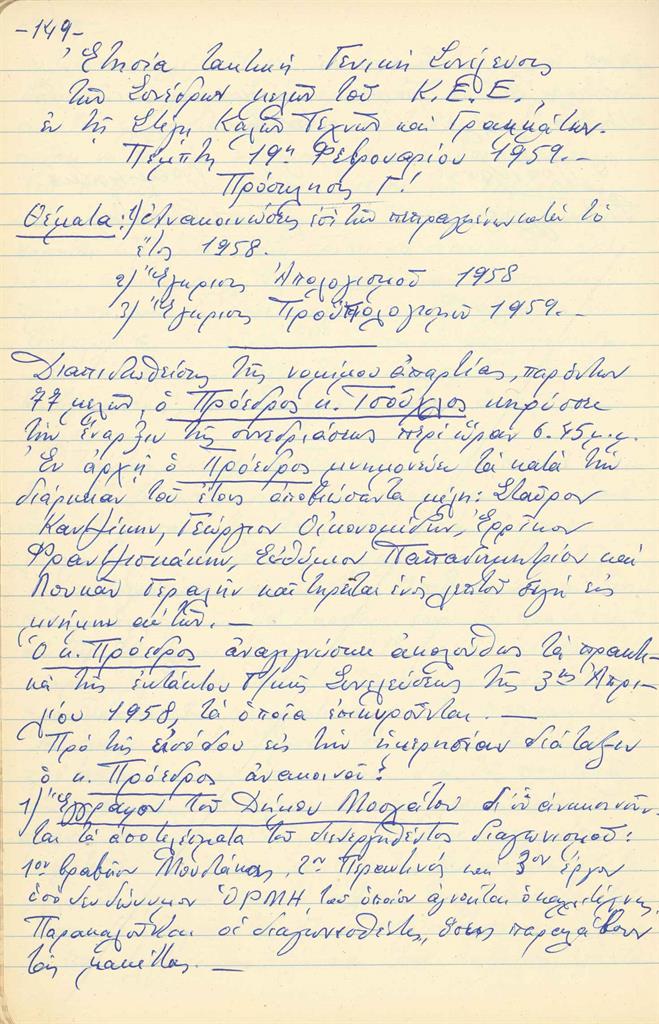 -149-
Ἐτησία τακτική Γενική Συνέλευσις
τῶν Συνέδρων μελῶν τοῦ Κ.Ε.Ε.,
ἐν τῇ Στέγῃ Καλῶν Τεχνῶν καί Γραμμάτων.
Πέμπτη 19η Φεβρουαρίου 1959.—
Πρόσκλησις Γ!
Θέματα: 1) Ἀνακοινώσεις ἐπί τῶν πεπραγμένων κατά τό
ἔτος 1958.
2) Ἔγκρισις Ἀπολογισμοῦ 1958
3) Ἔγκρισις Προϋπολογισμοῦ 1959.—
Διαπιστωθείσης τῆς νομίμου ἀπαρτίας, παρόντων
77 μελῶν, ὁ Πρόεδρος κ. Τσοῦχλος κηρύσσει
τήν ἔναρξιν τῆς συνεδριάσεως περί ὥραν 6.45 μ.μ.
Ἐν ἀρχῇ ὁ Πρόεδρος μνημονεύει τά κατά τήν
διάρκειαν τοῦ ἔτους ἀποβιώσαντα μέλη: Σταῦρον
Καντζίκην, Γεώργιον Οἰκονομίδην, Ἐρρῖκον
Φραντζισκάκην, Εὐθύμιον Παπαδημητρίου καί
Λουκᾶν Γεραλῆν καί τηρεῖται ἑνός λεπτοῦ σιγή εἰς
μνήμην αὐτῶν.—
Ὁ κ. Πρόεδρος ἀναγιγνώσκει ἀκολούθως τά πρακτι-
κά τῆς ἐκτάκτου Γ/κῆς Συνελεύσεως τῆς 3ης Ἀπρι-
λίου 1958, τά ὁποῖα ἐπικυροῦνται.—
Πρό τῆς εἰσόδου εἰς τήν ἡμερησίαν διάταξιν
ὁ κ. Πρόεδρος ἀνακοινοῖ:
1) Ἔγγραφον τοῦ Δήμου Μοσχάτου δι' οὗ ἀνακοινοῦν-
ται τά ἀποτελέσματα τοῦ διενεργηθέντος διαγωνισμοῦ:
1ον βραβεῖον Μουστάκας, 2ον Περαντινός και 3ον ἔργον
ὑπό ψευδώνυμον ὉΡΜΗ τοῦ ὁποίου ἀγνοεῖται ὁ καλλιτέχνης.
Παρακαλοῦνται οἱ διαγωνισθέντες, ὅπως παραλάβουν
τάς μακέττας.—